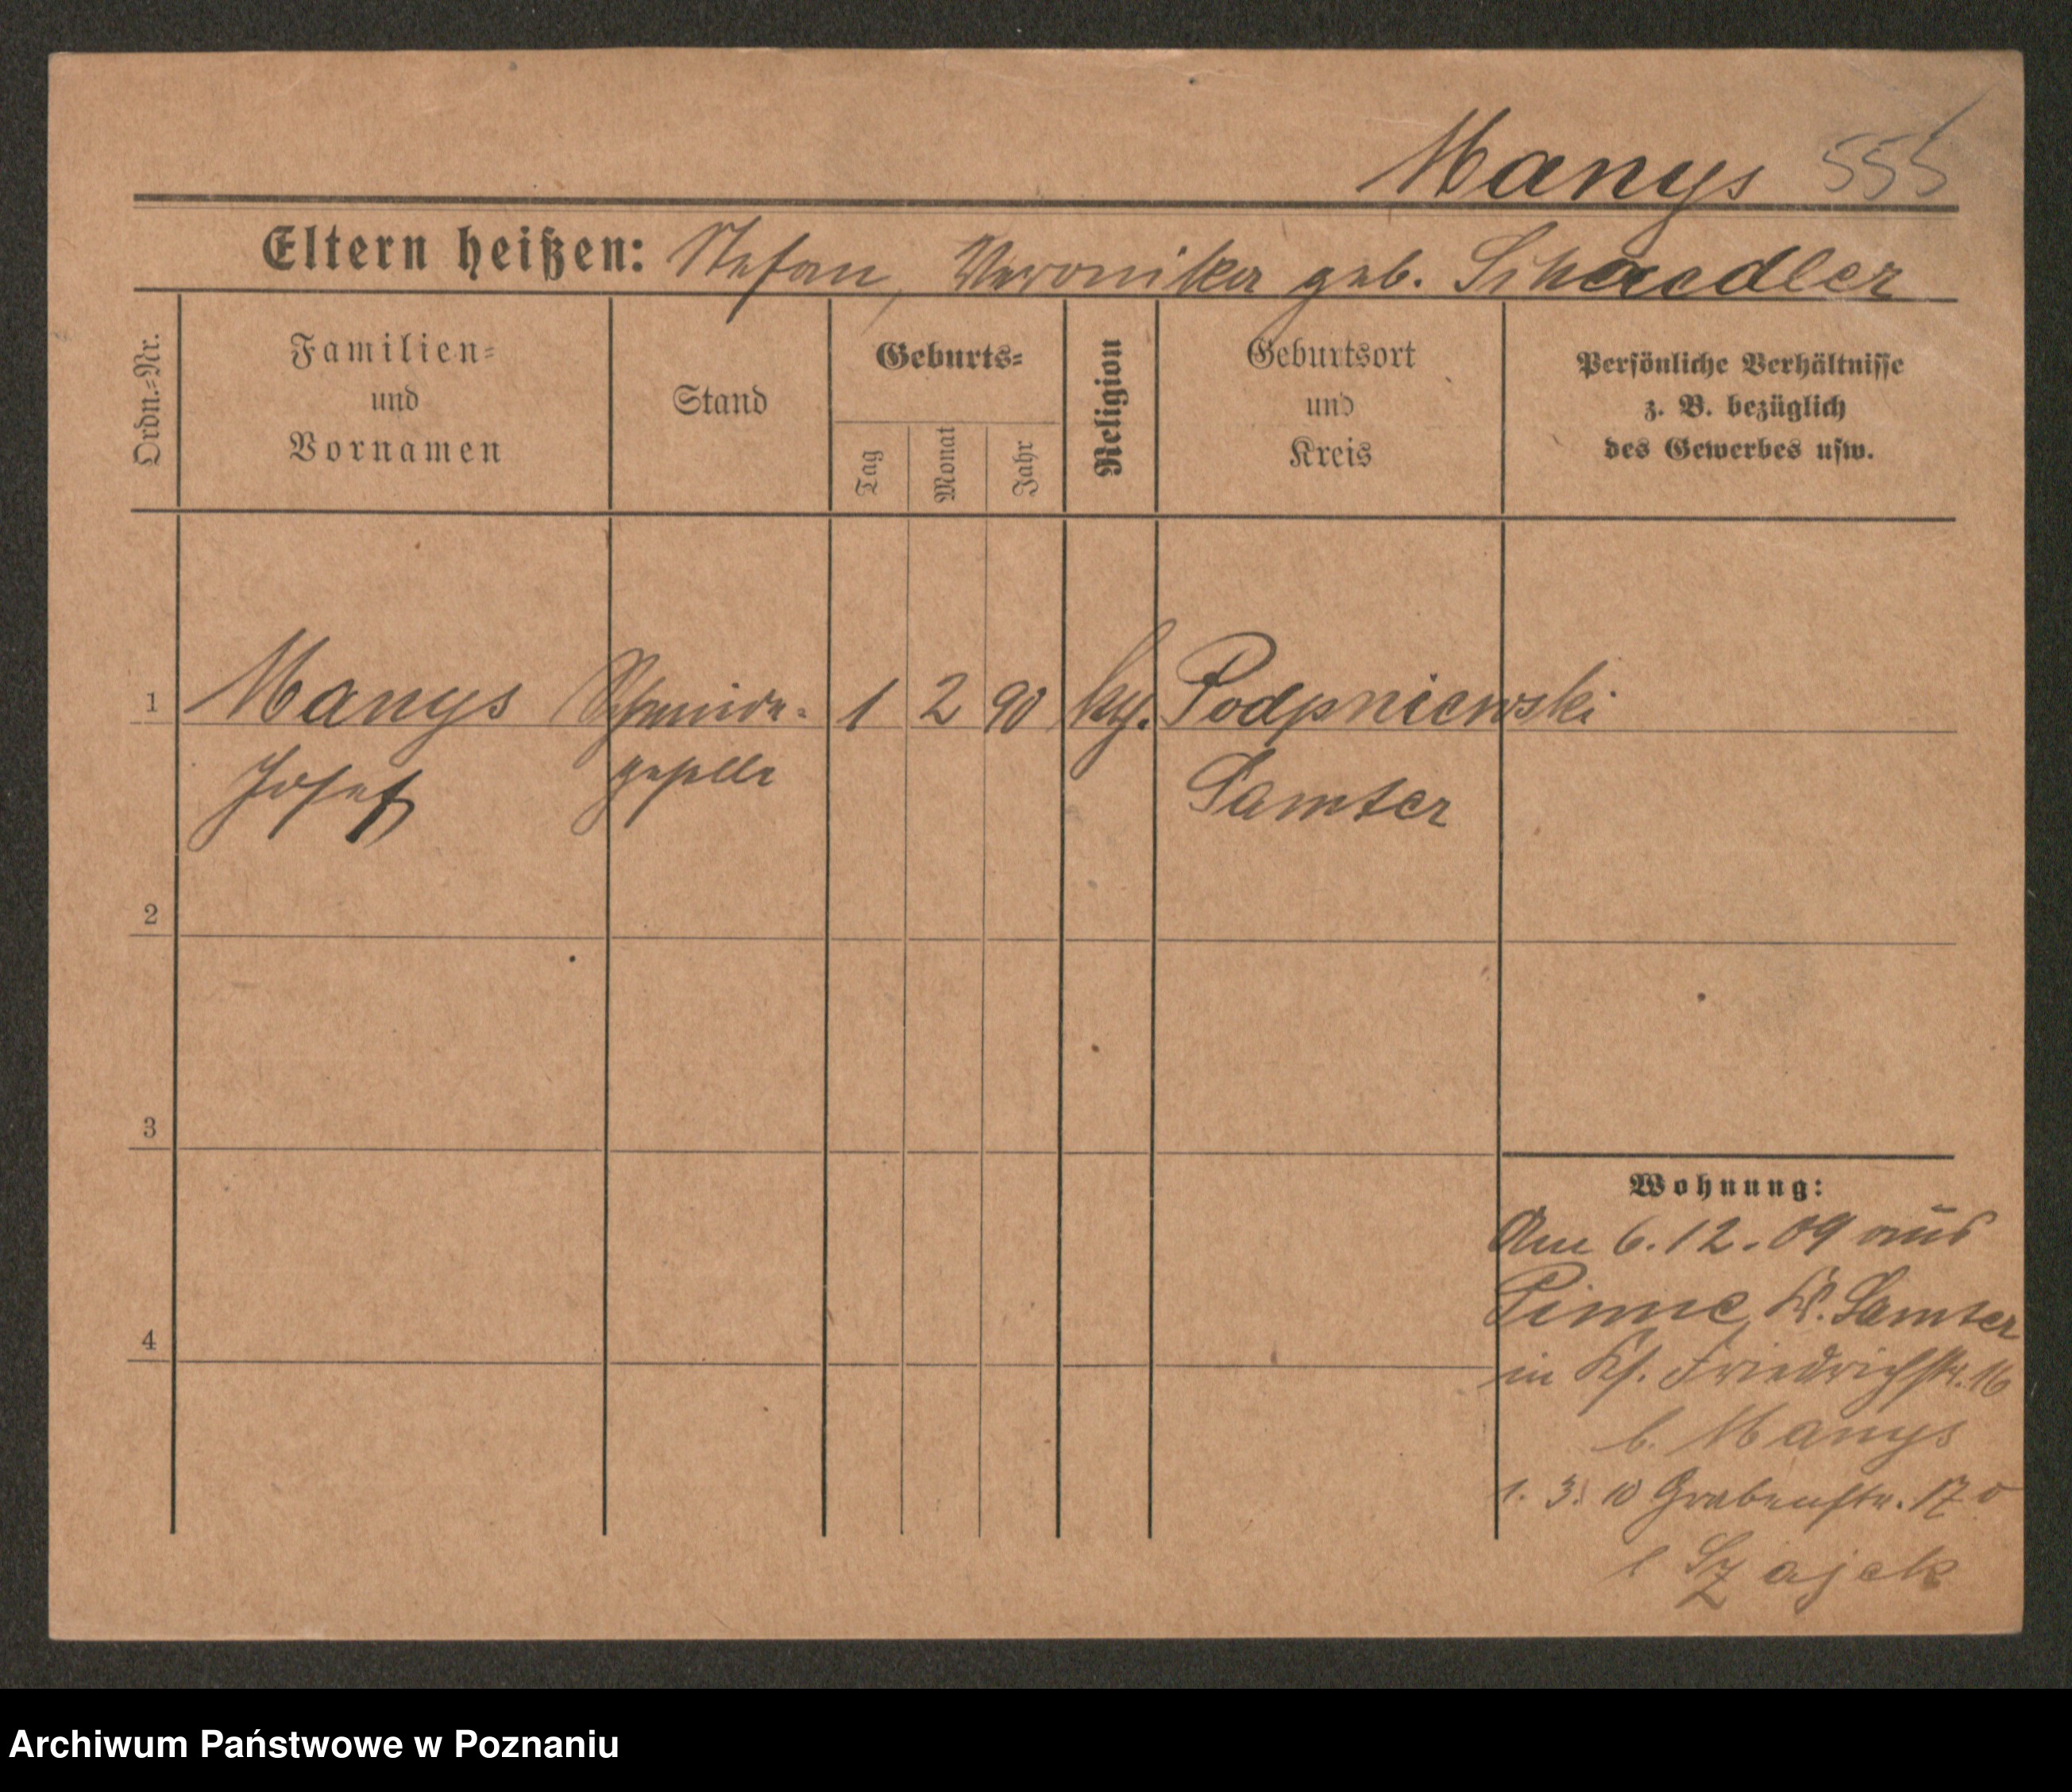 Manys 555
Eltern heißen: Stefan, Veronika geb. Schaedler
Ordn.-Nr.
Familien-
und
Vornamen
Stand
Geburts-
Tag
Monat
Jahr
Religion
Geburtsort
und
Kreis
Persönliche Verhältnisse
z. B. bezüglich
des Gewerbes usw.
1 Manys 1 2 90 Podpniewski
Josef geselle Samter
2
3
4
Wohnung:
Am 6.12.09 aus
Pinne, Kr. Samter
in Friedrichstr. 16
b. Manys
1. 3. 10 Grabenstr. 17
Szajek
Archiwum Państwowe w Poznaniu